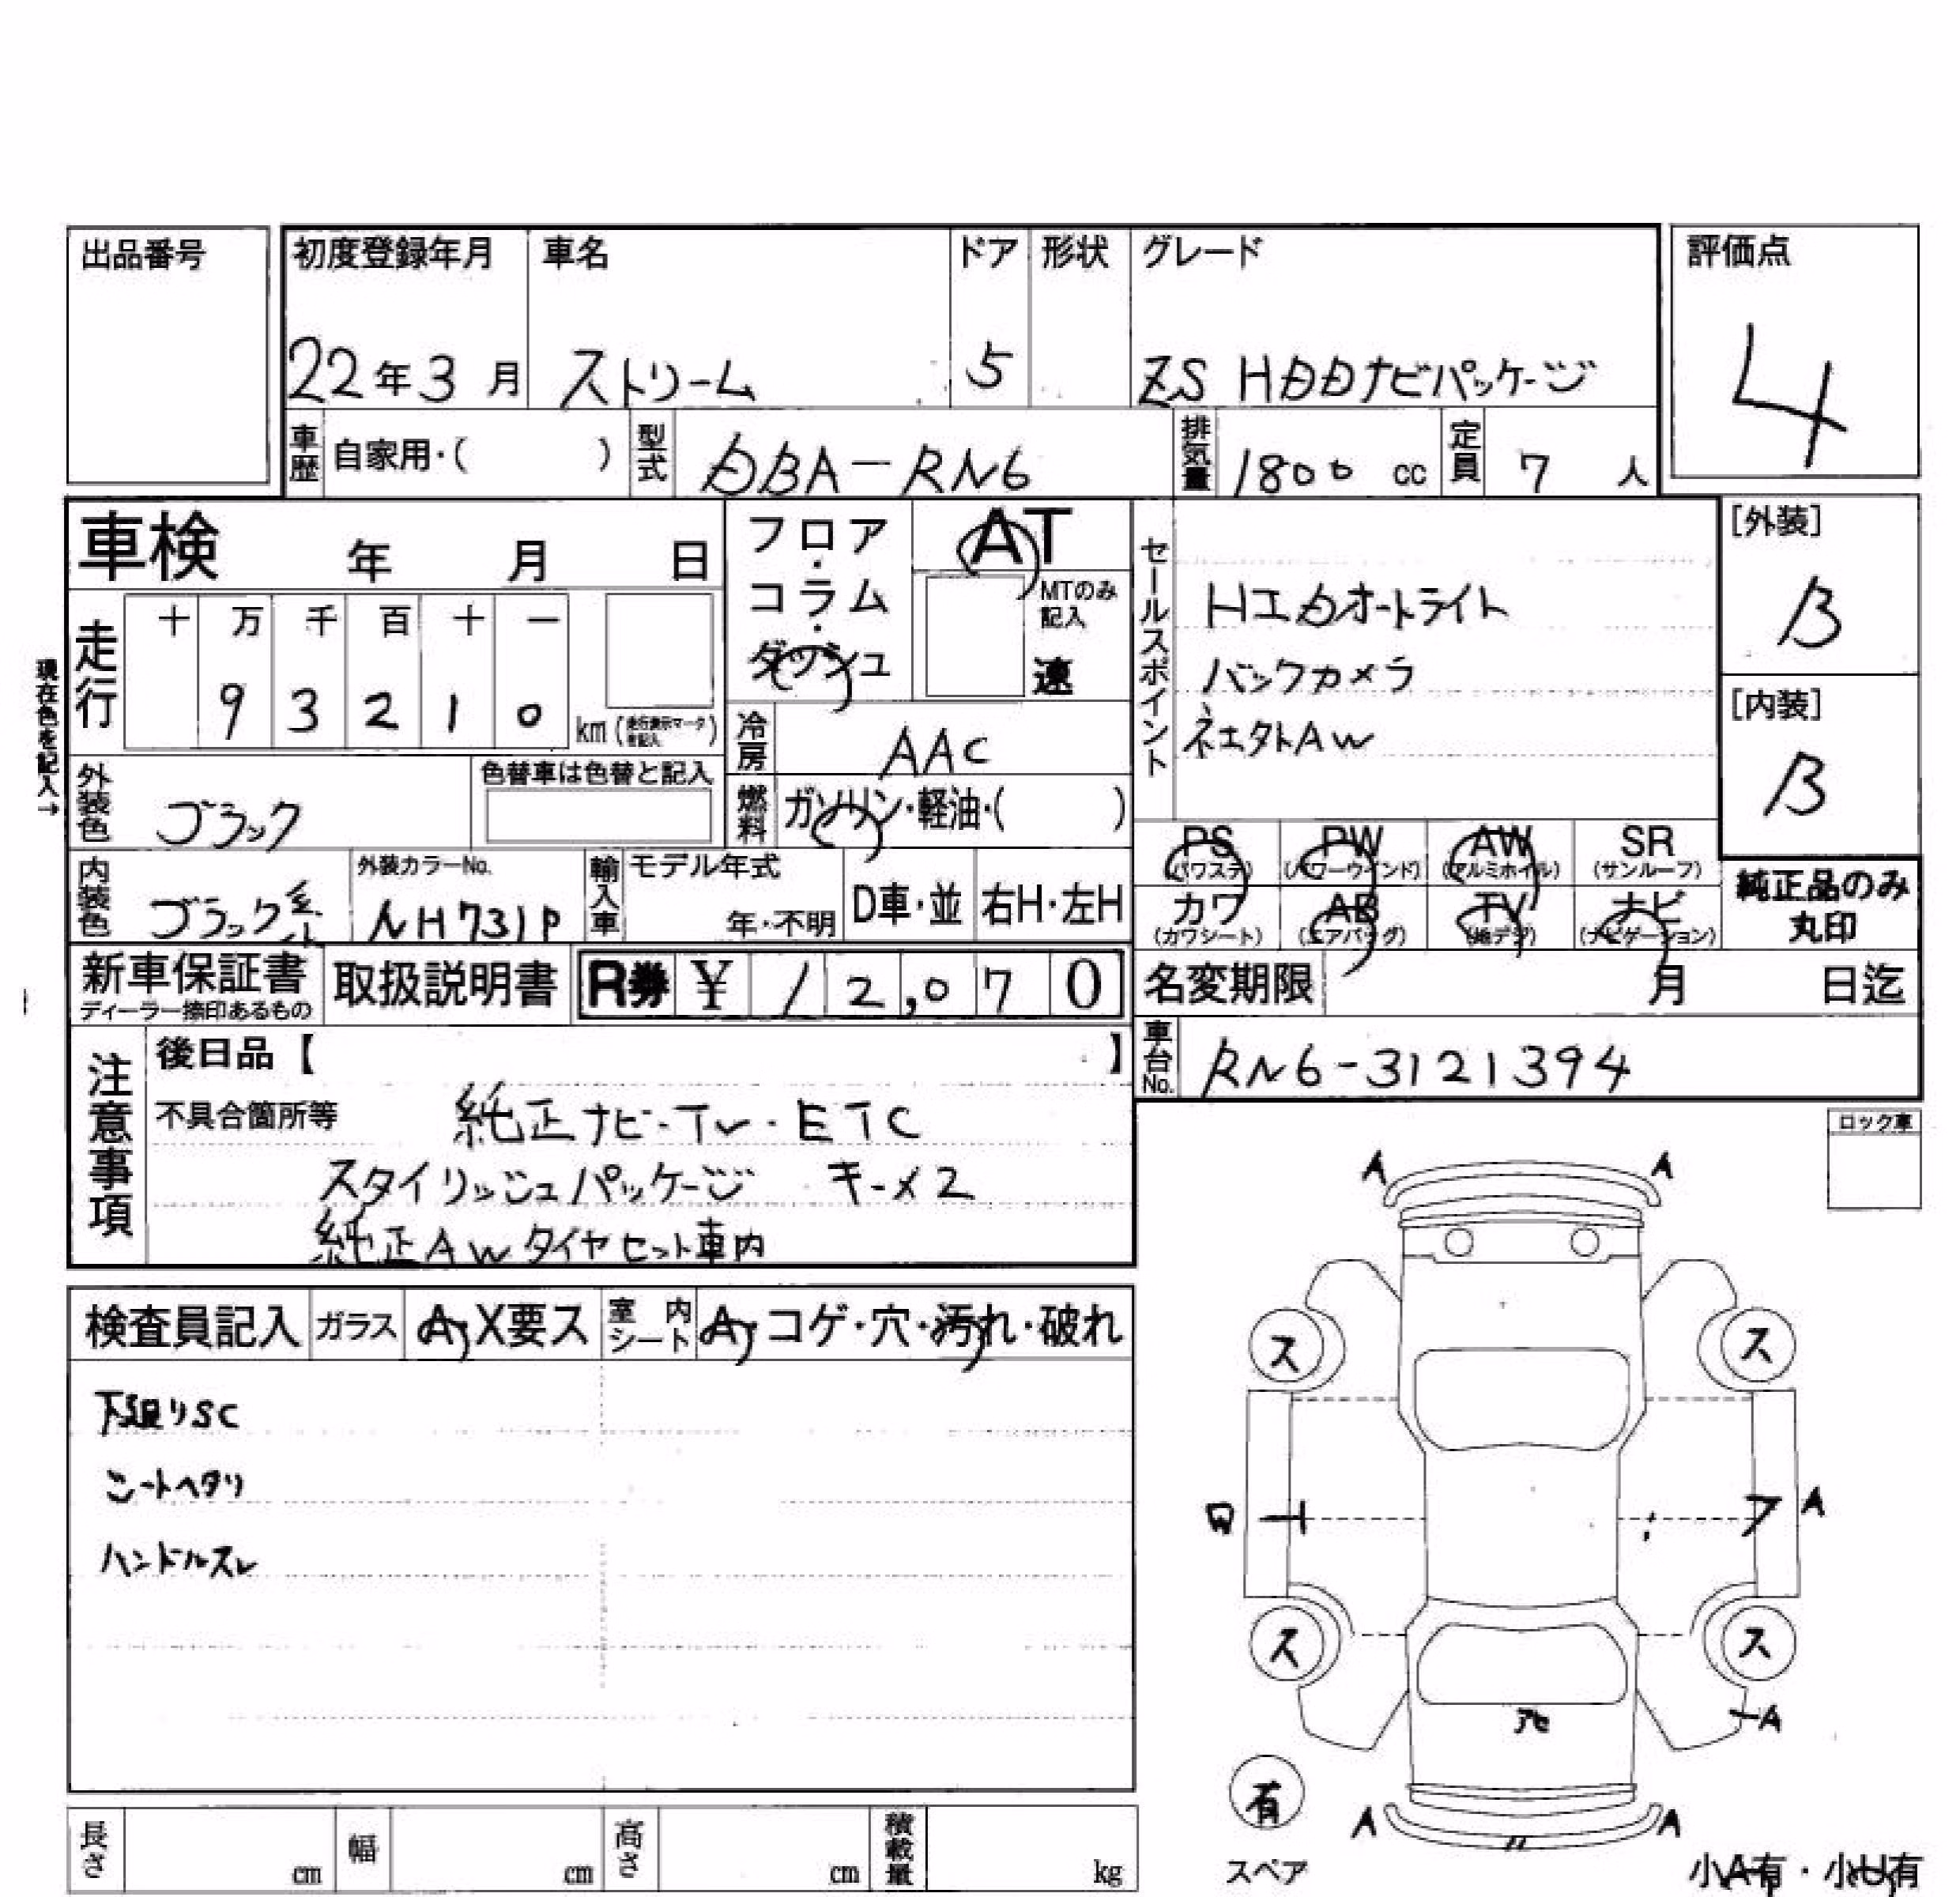 出品番号
初度登録年月 車名 ドア 形状 グレード
評価点
22年3月 ストリーム 5 ZS HDDナビパッケージ
4
車歴 自家用・( ) 型式 DBA-RN6 排気量 1800 cc 定員 7 人
車検 年 月 日
フロア・コラム・ダッシュ
AT
MTのみ記入
速
セールスポイント
HIDオートライト
バックカメラ
社外AW
[外装]
B
[内装]
B
現在色を記入→
走行 十 万 千 百 十 一
9 3 2 1 0 km (走行表示マークを記入)
冷房 AAC
外装色 ブラック
色替車は色替と記入
燃料 ガソリン・軽油・( )
内装色 ブラック系
外装カラーNo.
NH731P
輸入車 モデル年式
年・不明 D車・並 右H・左H
PS PW AW SR
(パワステ) (パワーウインド) (アルミホイル) (サンルーフ)
カワ AB TV ナビ
(カワシート) (エアバッグ) (地デジ) (ナビゲーション)
純正品のみ
丸印
新車保証書
ディーラー捺印あるもの
取扱説明書 R券 ¥ 12,070
名変期限 月 日迄
車台No. RN6-3121394
注意事項
後日品【 】
不具合箇所等 純正ナビ・TV・ETC
スタイリッシュパッケージ キーメ2
純正AWタイヤセット車内
ロック車
検査員記入 ガラス A・X要ス 室内シート A・コゲ・穴・汚れ・破れ
下廻りSC
シートヘタリ
ハンドルスレ
A A
ス ス
A
ス ス
アセ
A
有
スペア
A A
小A有・小U有
長さ cm 幅 cm 高さ cm 積載量 kg